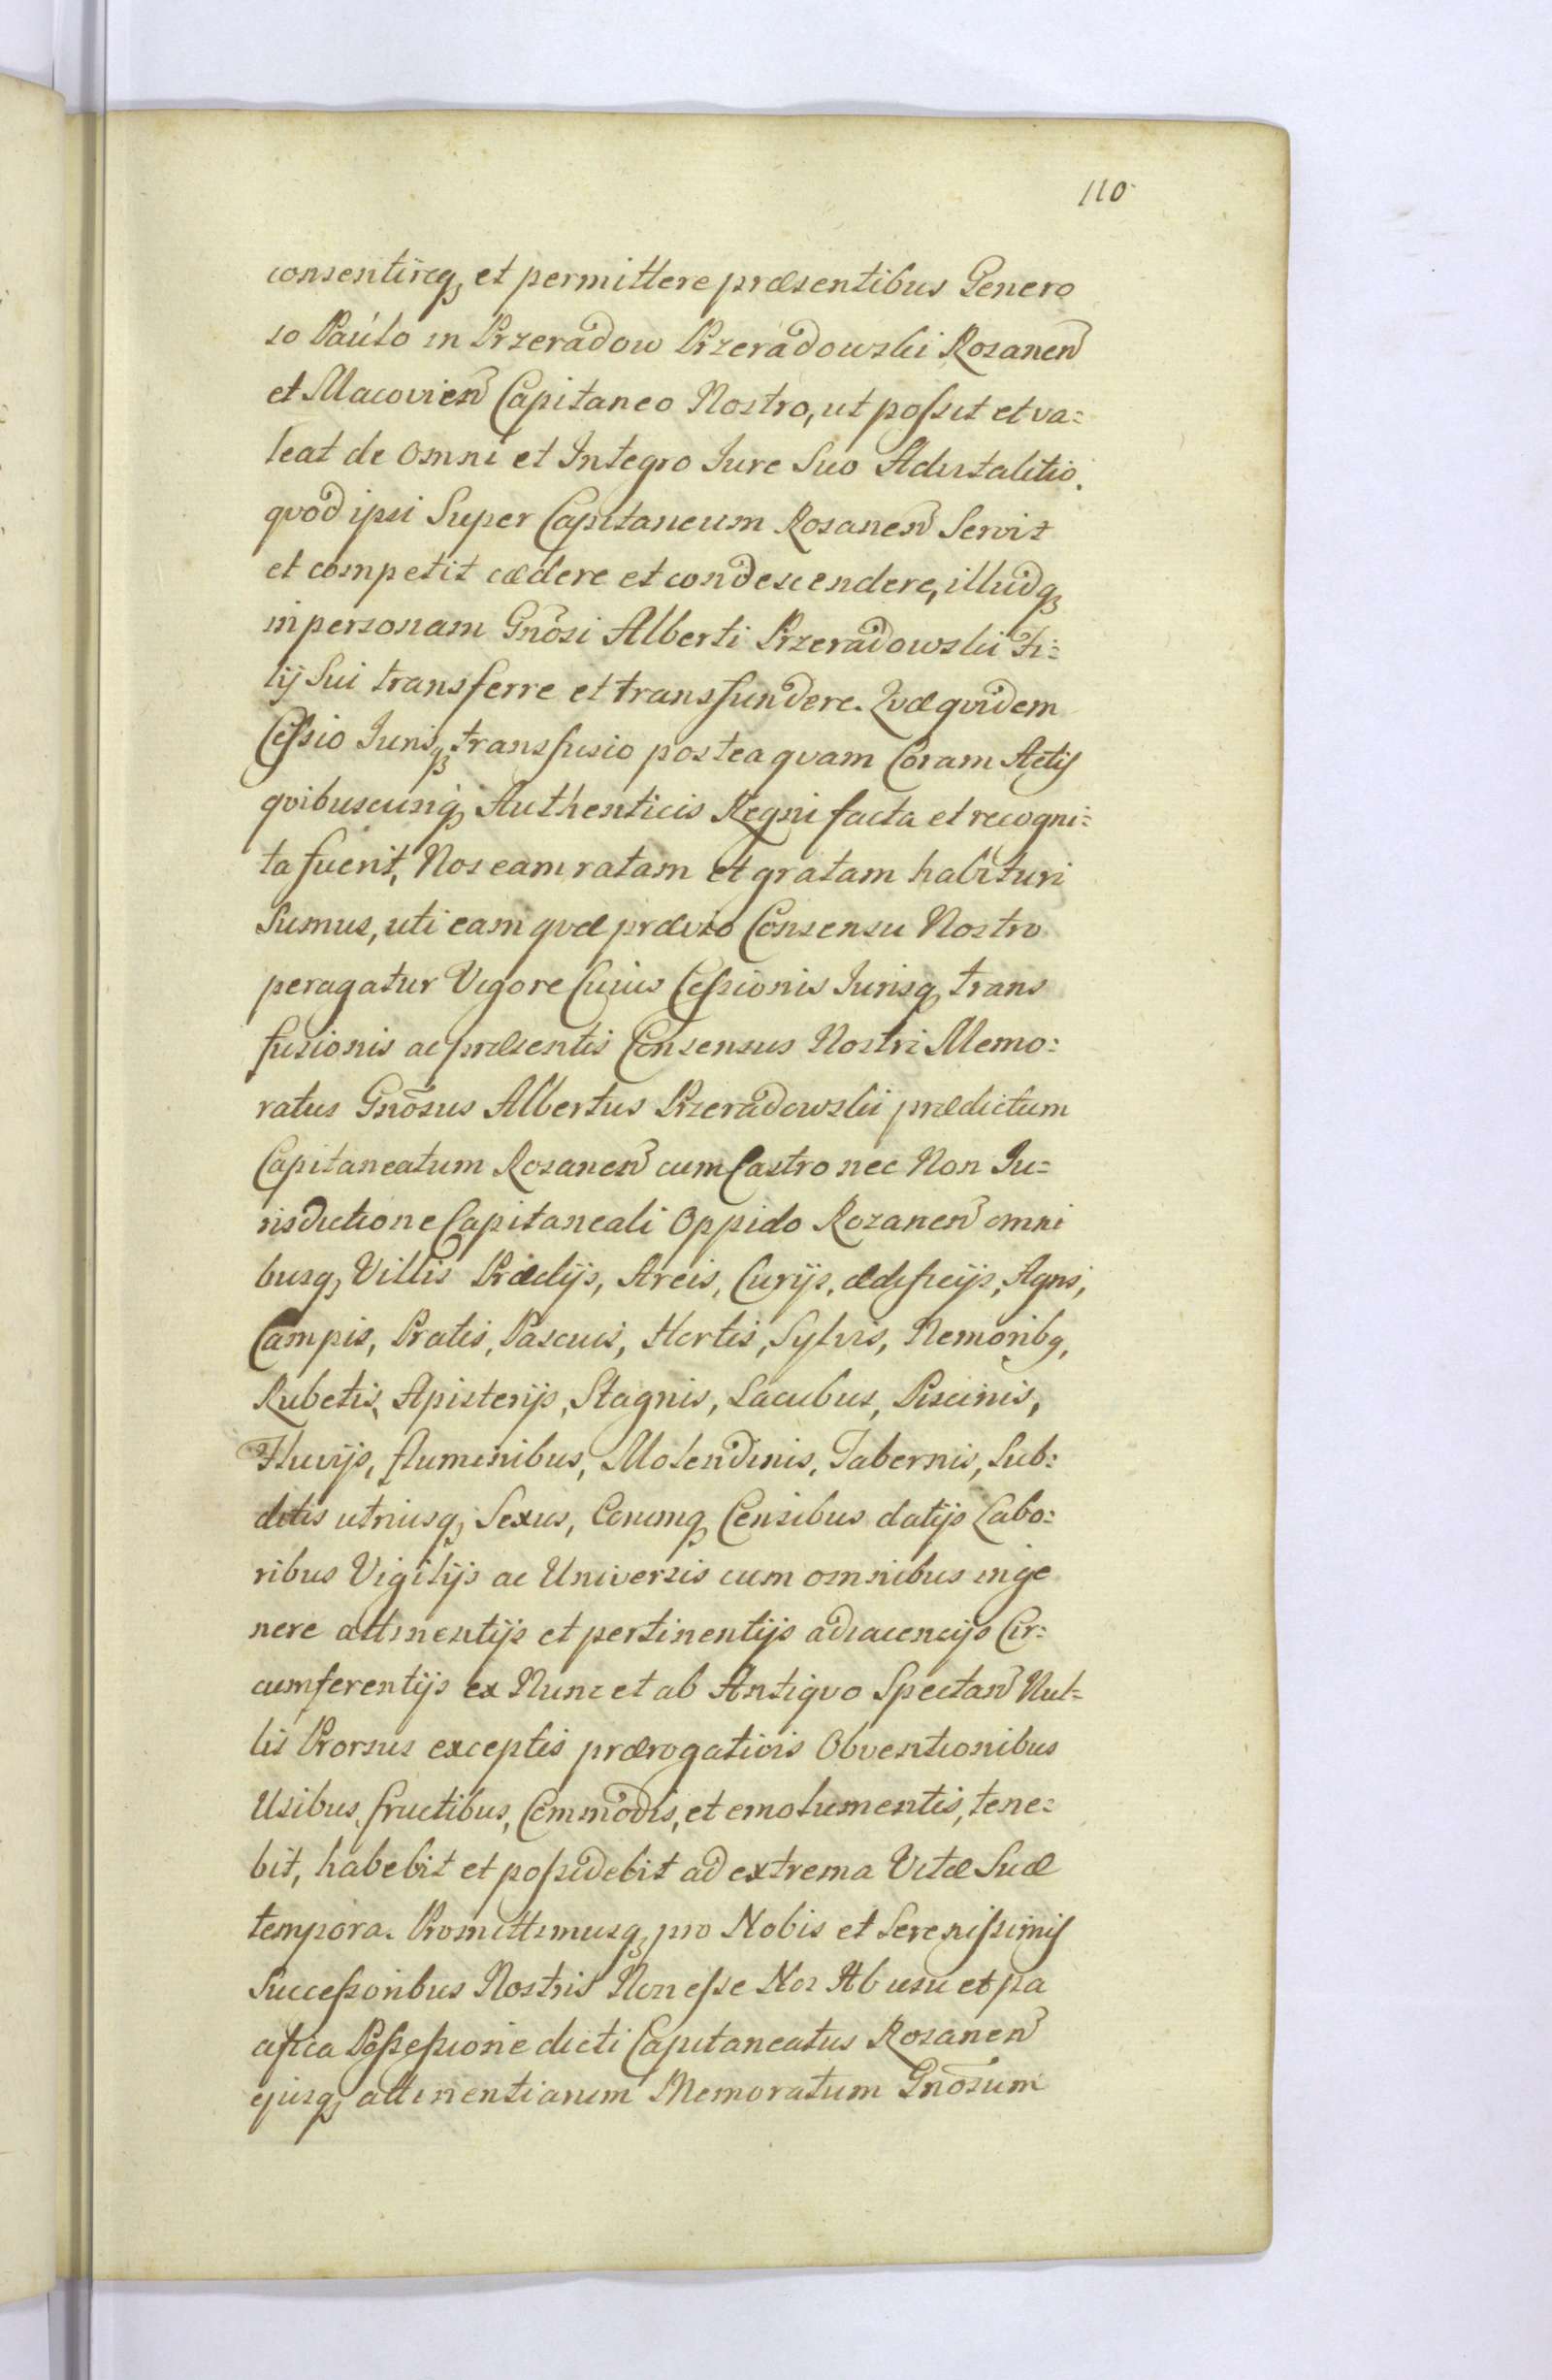 110
consentireq; et permittere præsentibus Genero
so Paulo in Przeradow Przeradowski Rosaneñ
et Macovieñ Capitaneo Nostro, ut possit et va=
leat de omni et Integro Iure Suo Advitalitio.
qvod ipsi Super Capitaneum Rosaneñ Servit
et competit cædere et condescendere, illudq;
in personam Gnõsi Alberti Przeradowski Fi=
lij Sui transferre et transfundere. Qvæ qvidem
Cessio Iurisq; transfusio postea qvam Coram Actis
qvibuscunq; Authenticis Regni facta et recogni=
ta fuerit, Nos eam ratam et gratam habituri
Sumus, uti eam qvæ prævio Consensu Nostro
peragatur Vigore Cuius Cessionis Iurisq; trans
fusionis ac præsentis Consensus Nostri Memo=
ratus Gnõsus Albertus Przeradowski prædictum
Capitaneatum Rosaneñ cum Castro nec Non Iu=
risdictione Capitaneali Oppido Rozaneñ omni
busq; Villis Prædijs, Areis, Curijs, ædificijs, Agris,
Campis, Pratis, Pascuis, Hortis, Sylvis, Nemoribq,
Rubetis, Apisterijs, Stagnis, Lacubus, Piscinis,
Fluvijs, fluminibus, Molendinis, Tabernis, Sub=
ditis utriusq; Sexus, Eorumq; Censibus datijs Labo=
ribus Vigilijs ac Universis cum omnibus in ge
nere attinentijs et pertinentijs adiacencijs Cir=
cumferentijs ex Nunc et ab Antiqvo Spectañ Nul=
lis Prorsus exceptis prærogativis Obventionibus
Usibus, fructibus, Commodis, et emolumentis, tene=
bit, habebit et possidebit ad extrema Vitæ Suæ
tempora. Promittimusq; pro Nobis et Serenissimis
Successoribus Nostris Non esse Nos Ab usu et pa
cifica Possessione dicti Capitaneatus Rosaneñ
ejusq; attinentiarum Memoratum Gnõsum